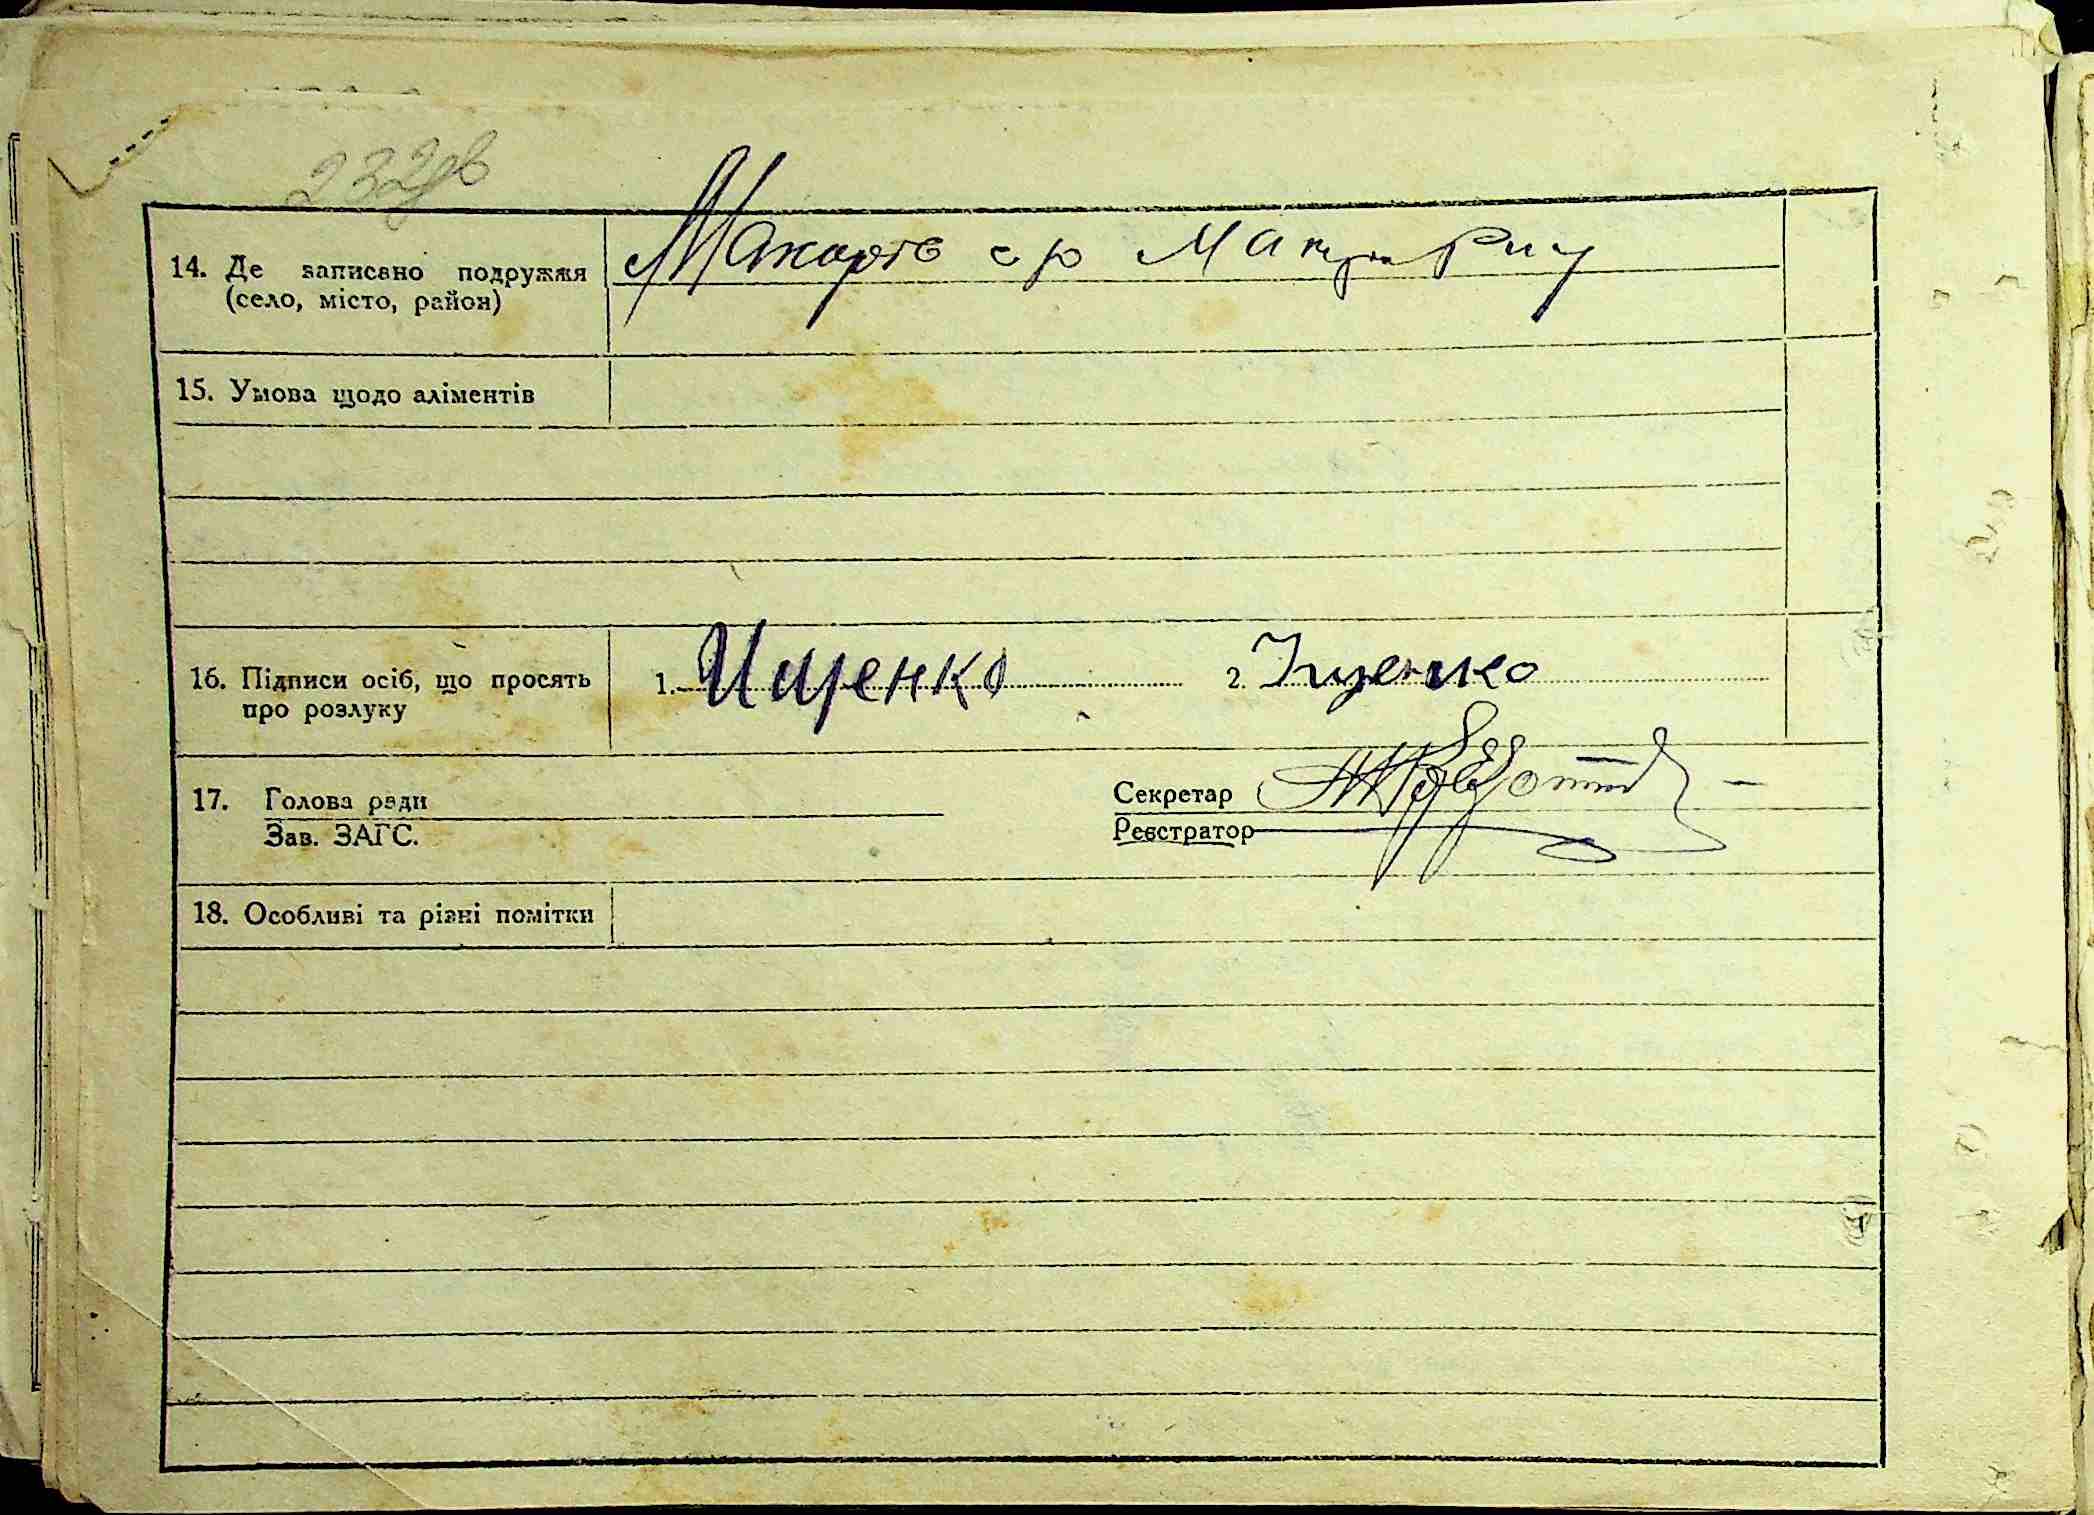 232зв
14. Де записано подружжя
(село, місто, район)
Макарів с/р Макар. Р-ну
15. Умова щодо аліментів
16. Підписи осіб, що просять
про розлуку
1. Ищенко 2. Іщенко
17. Голова ради
Зав. ЗАГС.
Секретар
Реєстратор
18. Особливі та різні помітки